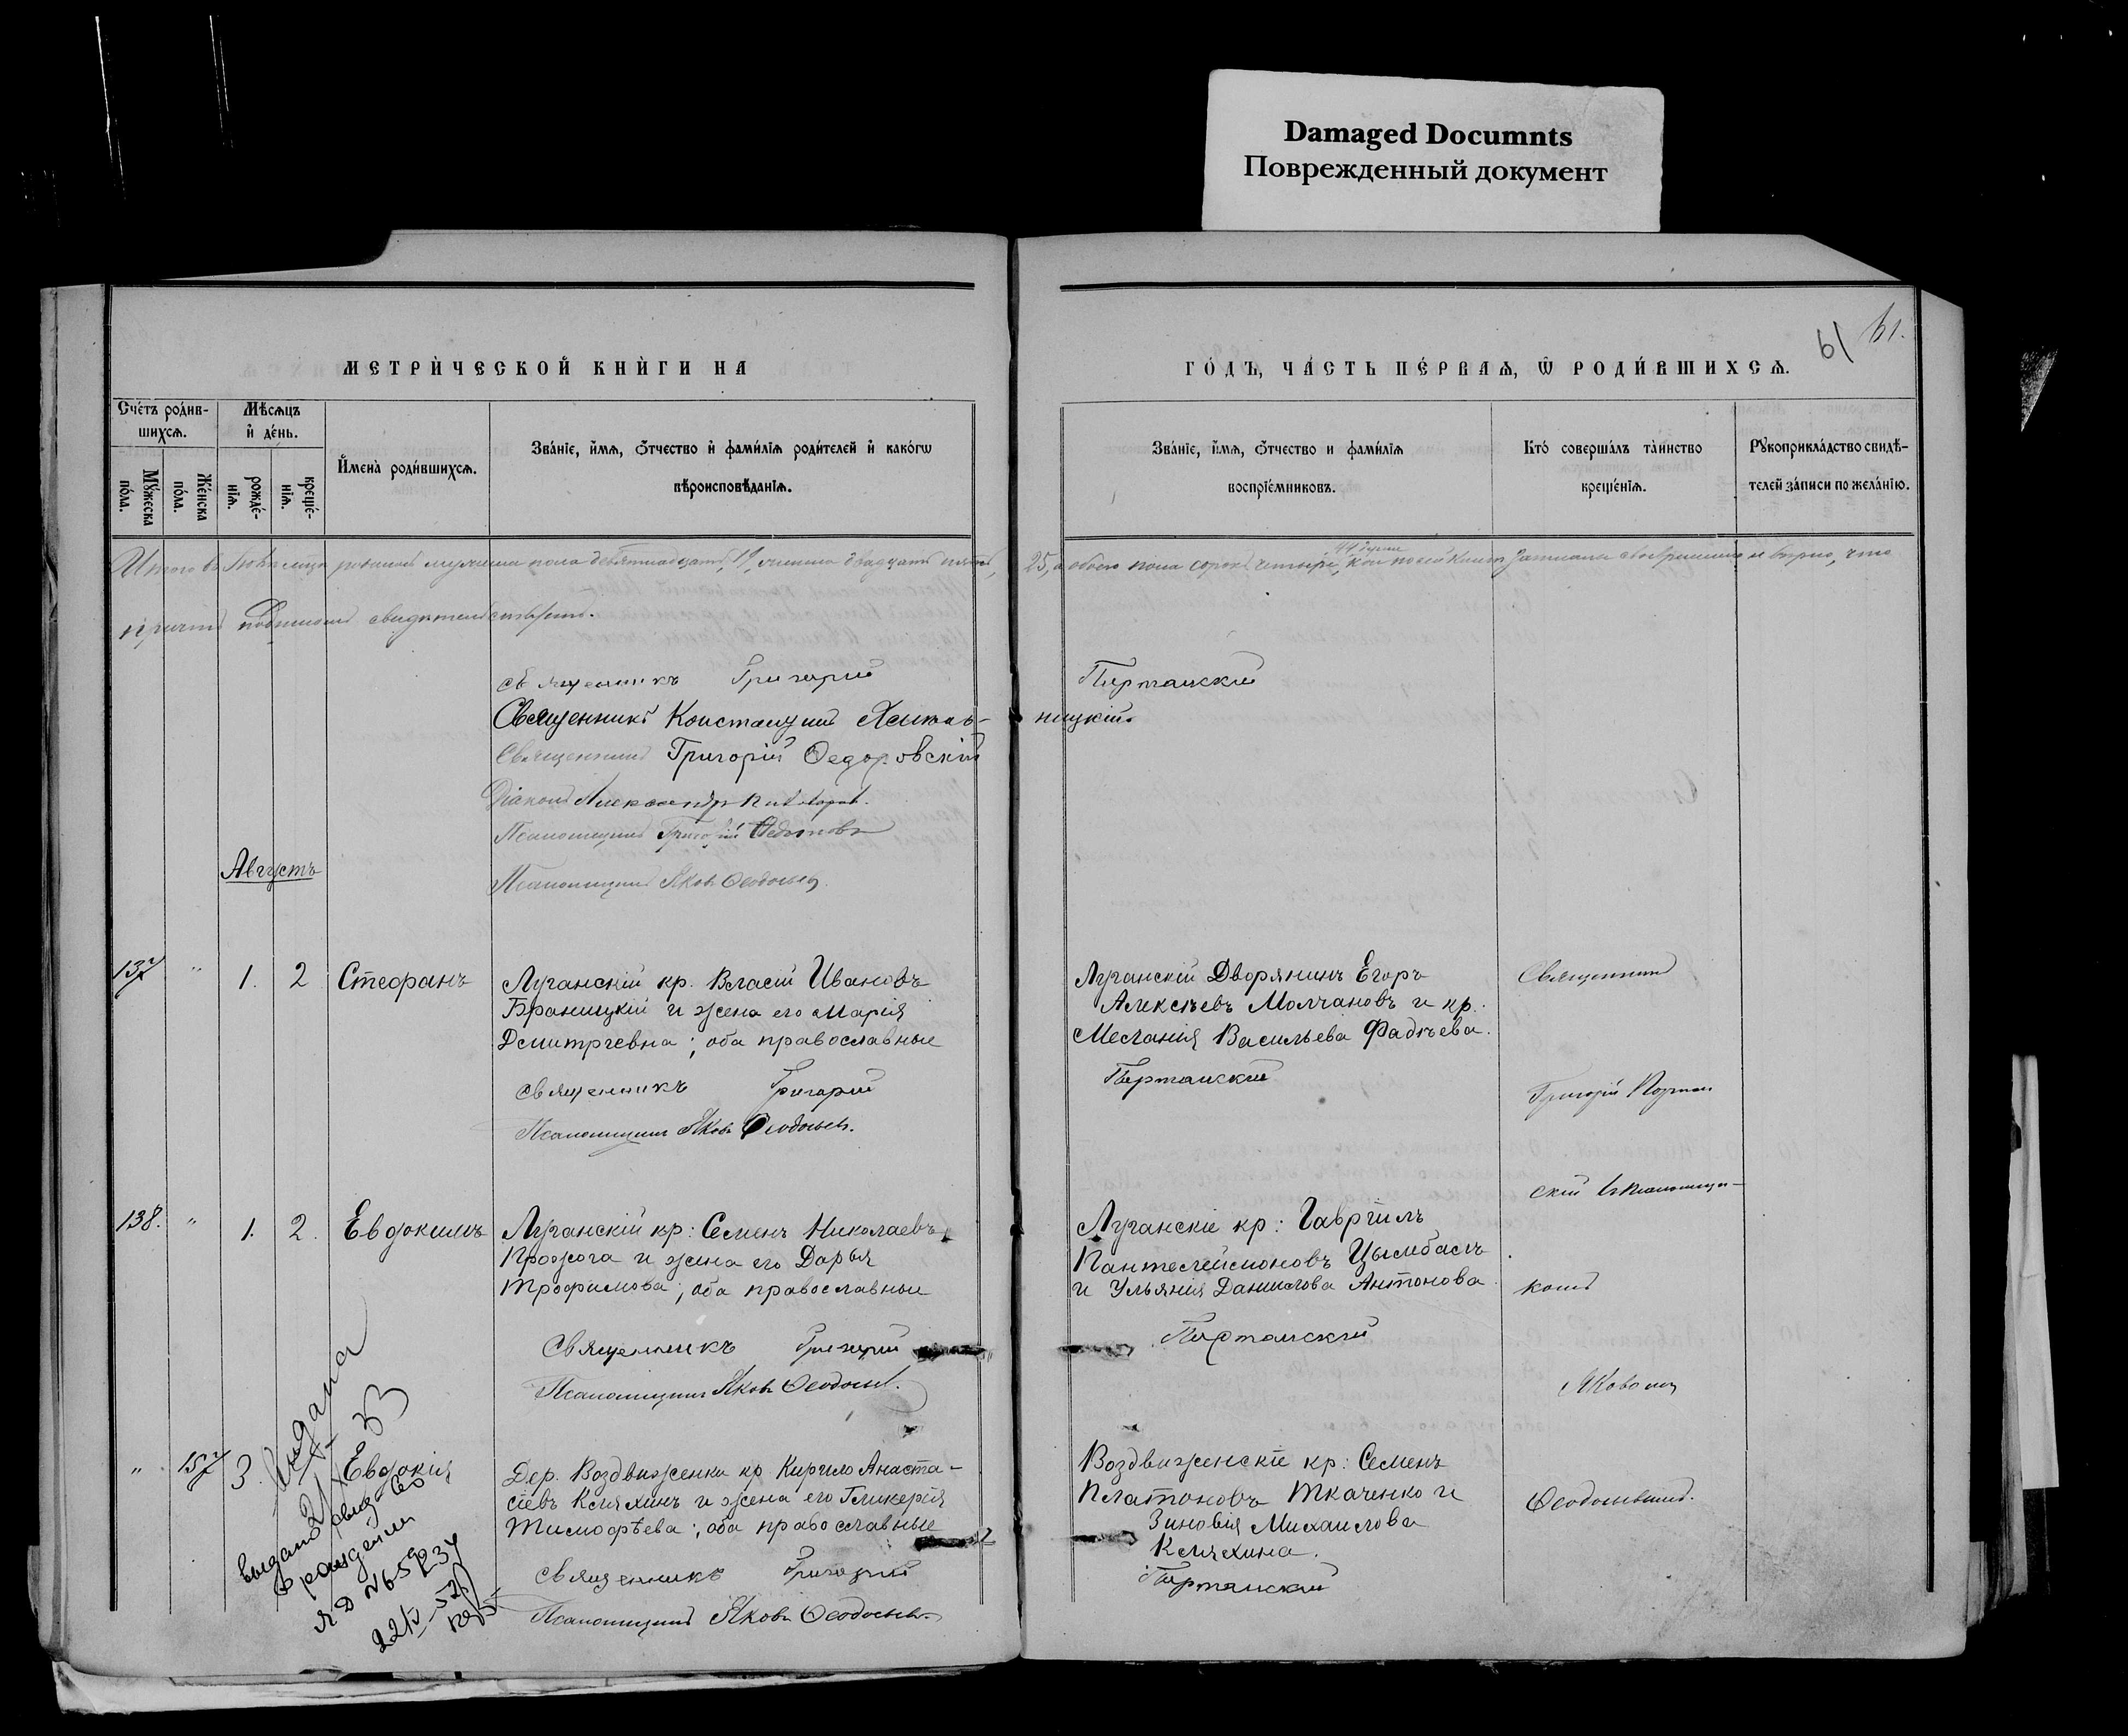 Damaged Documnts
Поврежденный документ
61 61.
МЕТРИ́ЧЕСКОЙ КНИ́ГИ НА
ГО́ДЪ, ЧА́СТЬ ПЕ́РВАѦ, Ѿ РОДИ́ВШИХСѦ.
Сче́тъ роди́в-
шихсѧ.
Мѣ́сѧцъ
и҆ де́нь.
Мꙋ́жеска
по́ла.
Же́нска
по́ла.
рожде́-
нїѧ.
креще́-
нїѧ.
И҆мена̀ роди́вшихсѧ.
Зва́нїе, и҆́мѧ, ѻ҆́тчество и҆ фами́лїѧ роди́телей и҆ како́гѡ
вѣроисповѣ́данїѧ.
Зва́нїе, и҆́мѧ, ѻ҆́тчество и фами́лїѧ
воспрїе́мниковъ.
Кто̀ соверша́лъ та́инство
креще́нїѧ.
Рꙋкоприкла́дство свидѣ́-
телей за́писи по жела́нїю.
Итого въ Іюлѣ м-цѣ родилось мужеска пола девятнадцать, 19, женска двадцать пять,
25, а обоего пола сорокъ четыре, 44 души
что
причтъ подписомъ свидѣтельствуетъ.
Священникъ Григорій
Портанскій
Священникъ Константинъ Хмѣль-
ницкій
Священникъ Григорій Ѳедоровскій
Діаконъ Александръ
Псаломщикъ Григорій
Августъ
Псаломщикъ Яковъ Ѳеодосьевъ
137 " 1. 2 Стефанъ
Луганскій кр. Власій Ивановъ
Браницкій и жена его Марія
Дмитріевна; оба православные
Священникъ Григорій
Псаломщикъ Яковъ Ѳеодосьевъ.
Луганскій Дворянинъ Егоръ
Алексѣевъ Молчановъ и кр.
Меланія Васильева Фадѣева.
Портанскій
Священникъ
Григорій Портан
скій съ псаломщи-
138. " 1. 2. Евдокимъ
Луганскій кр: Семенъ Николаевъ
Прожога и жена его Дарья
Трофимова; оба православные
Священникъ Григорій
Псаломщикъ Яковъ Ѳеодосьевъ.
Луганскіе кр: Гавріилъ
Пантелеймоновъ Цымбалъ
и Ульянія Данилова Антонова
Портанскій
комъ
Яковомъ
" 157 3. Евдокія
Дер. Воздвиженки кр. Кирило Анаста-
сіевъ Кляхинъ и жена его Гликерія
Тимофѣева; оба православные
Священникъ Григорій
Псаломщикъ Яковъ Ѳеодосьевъ
Воздвиженскіе кр: Семенъ
Платоновъ Ткаченко и
Зиновія Михаилова
Кляхина.
Портанскій
Ѳеодосьевымъ.
Выдана
выдано свид-во
о рождении